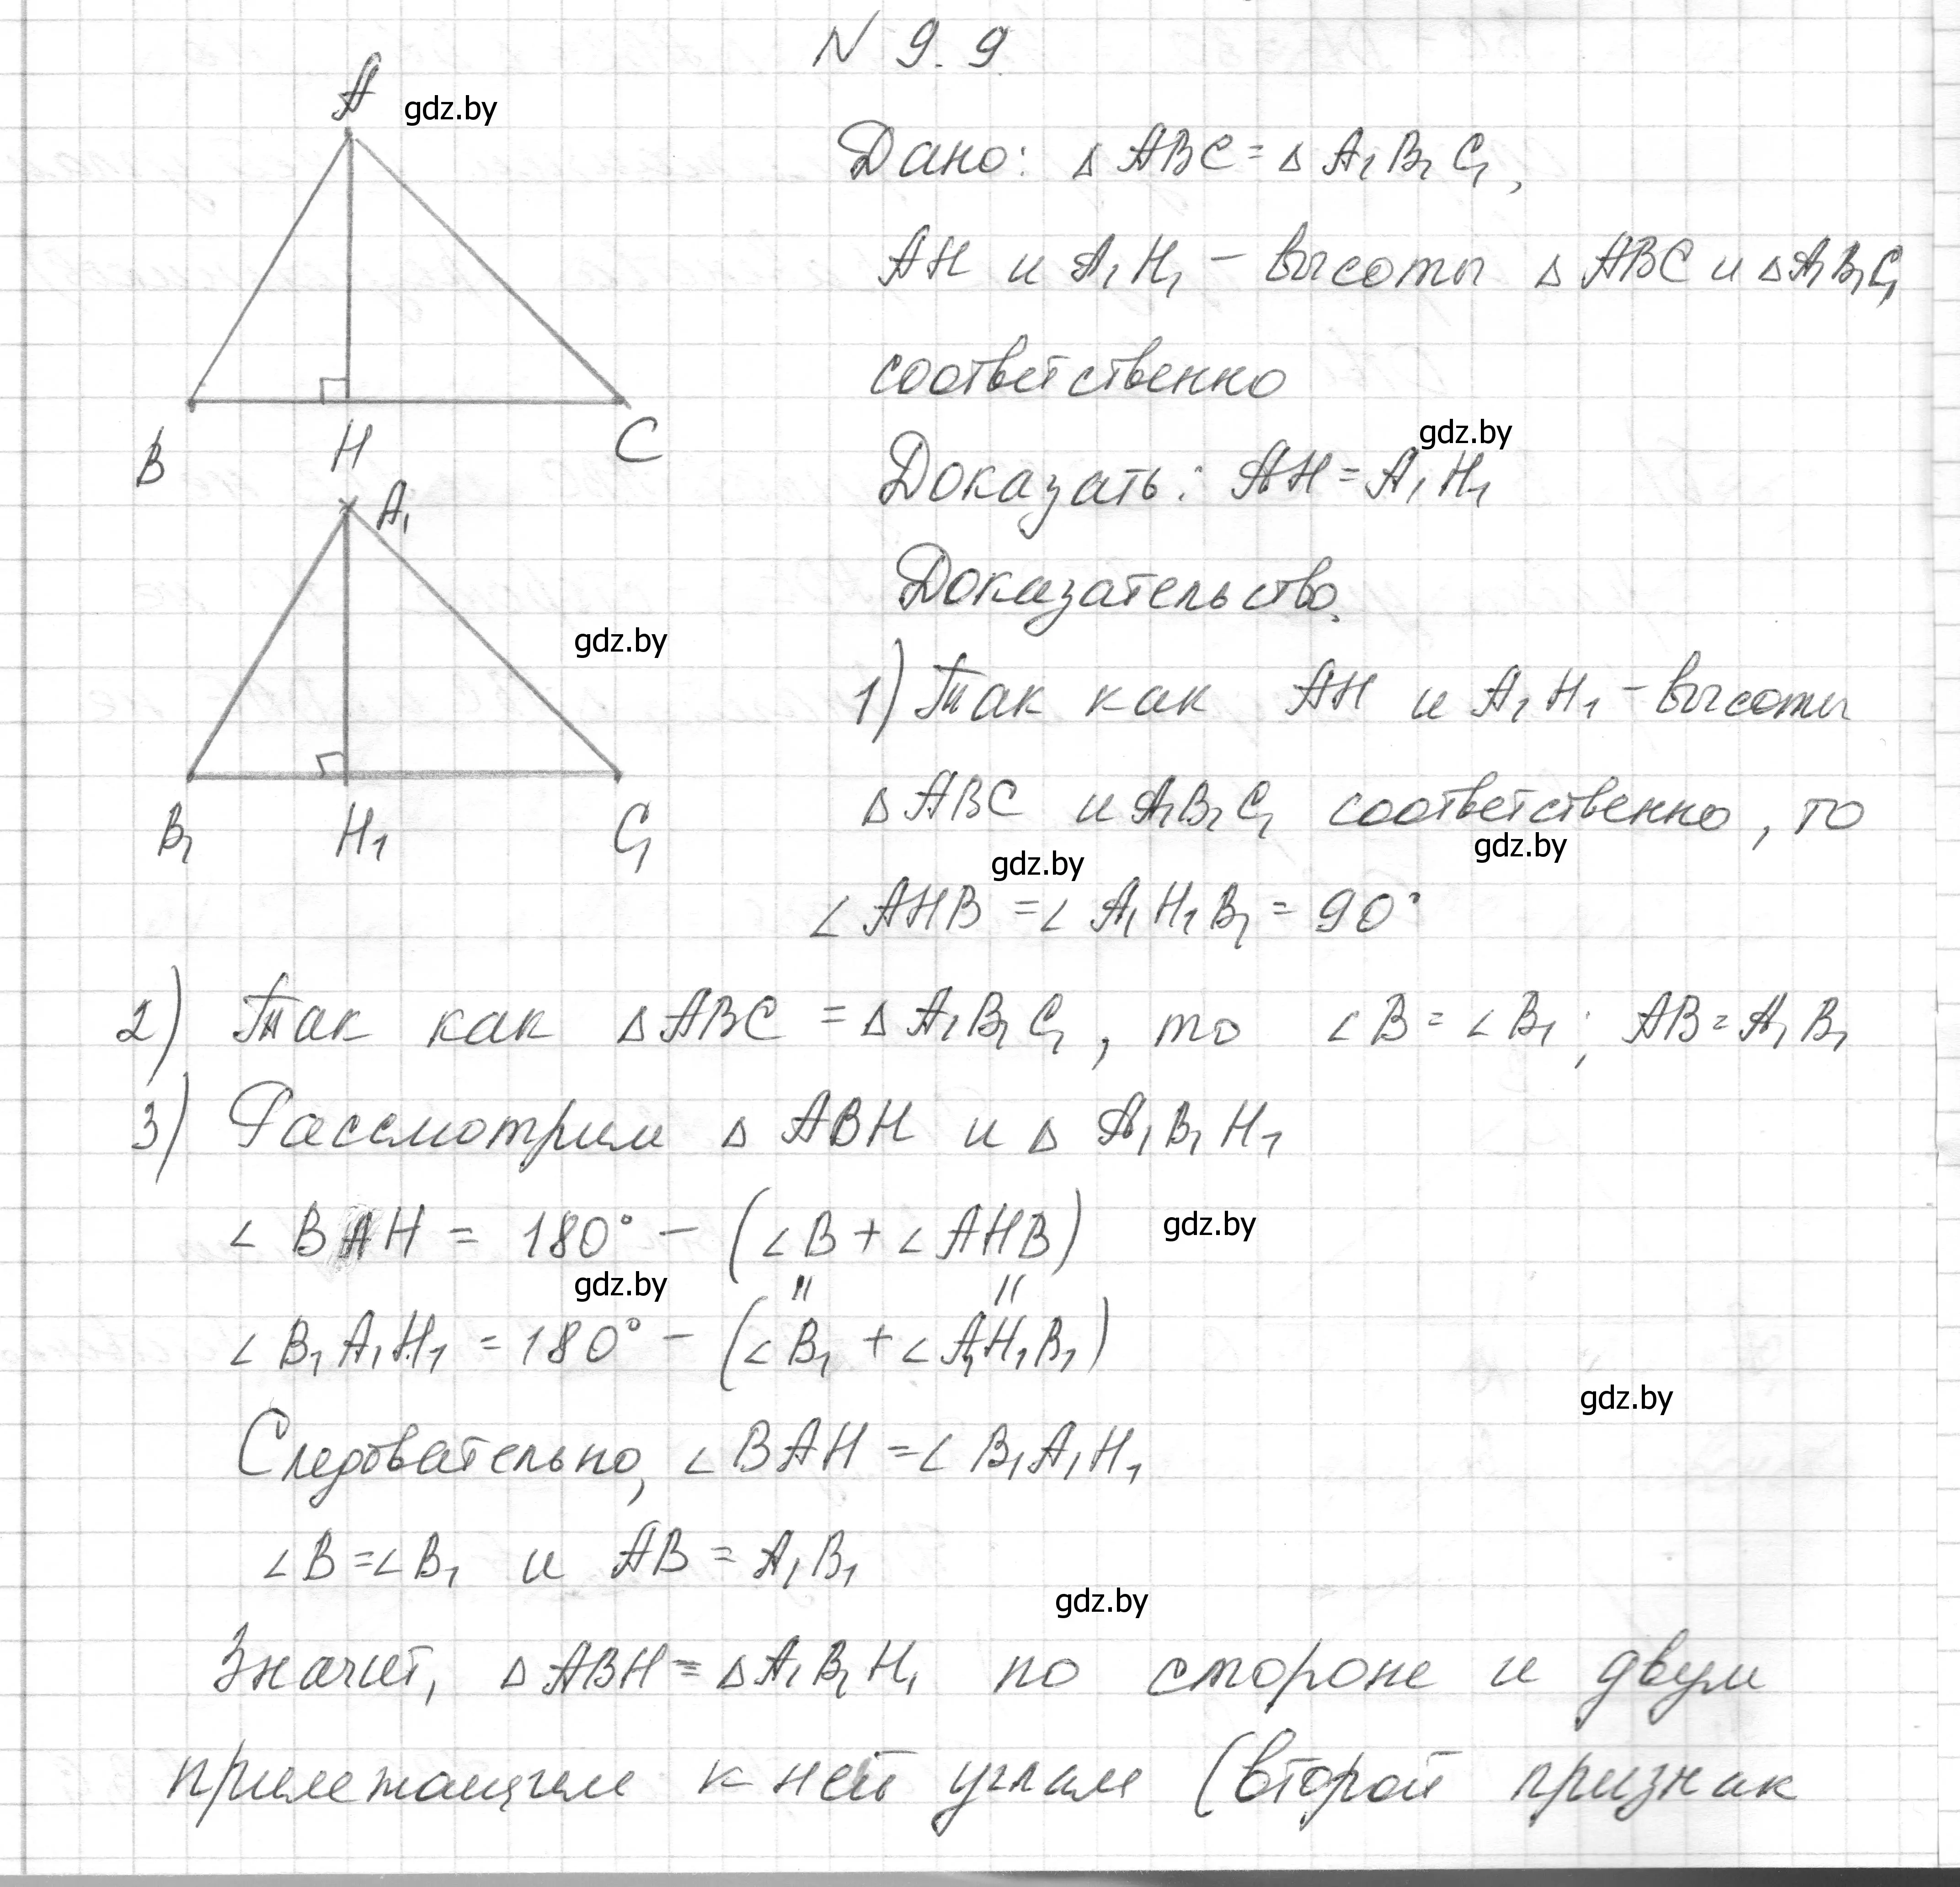 N 9.9
A gdz.by
Дано: △ ABC = △ A₁B₁C₁,
AH и A₁H₁ – высоты △ ABC и △A₁B₁C₁
соответственно
B H C
gdz.by
Доказать: AH = A₁H₁
A₁
Доказательство.
gdz.by
1) Так как AH и A₁H₁ – высоты
△ ABC и A₁B₁C₁ соответственно, то
B₁ H₁ C₁
gdz.by gdz.by
∠ AHB = ∠ A₁H₁B₁ = 90°
2) Так как △ ABC = △ A₁B₁C₁, то ∠ B = ∠ B₁; AB = A₁B₁
3) Рассмотрим △ ABH и △ A₁B₁H₁
∠ BAH = 180° – (∠ B + ∠ AHB) gdz.by
gdz.by " "
∠ B₁A₁H₁ = 180° – (∠ B₁ + ∠ A₁H₁B₁)
gdz.by
Следовательно, ∠ BAH = ∠ B₁A₁H₁
∠ B = ∠ B₁ и AB = A₁B₁
gdz.by
Значит, △ ABH = △ A₁B₁H₁ по стороне и двум
прилежащим к ней углам (второй признак